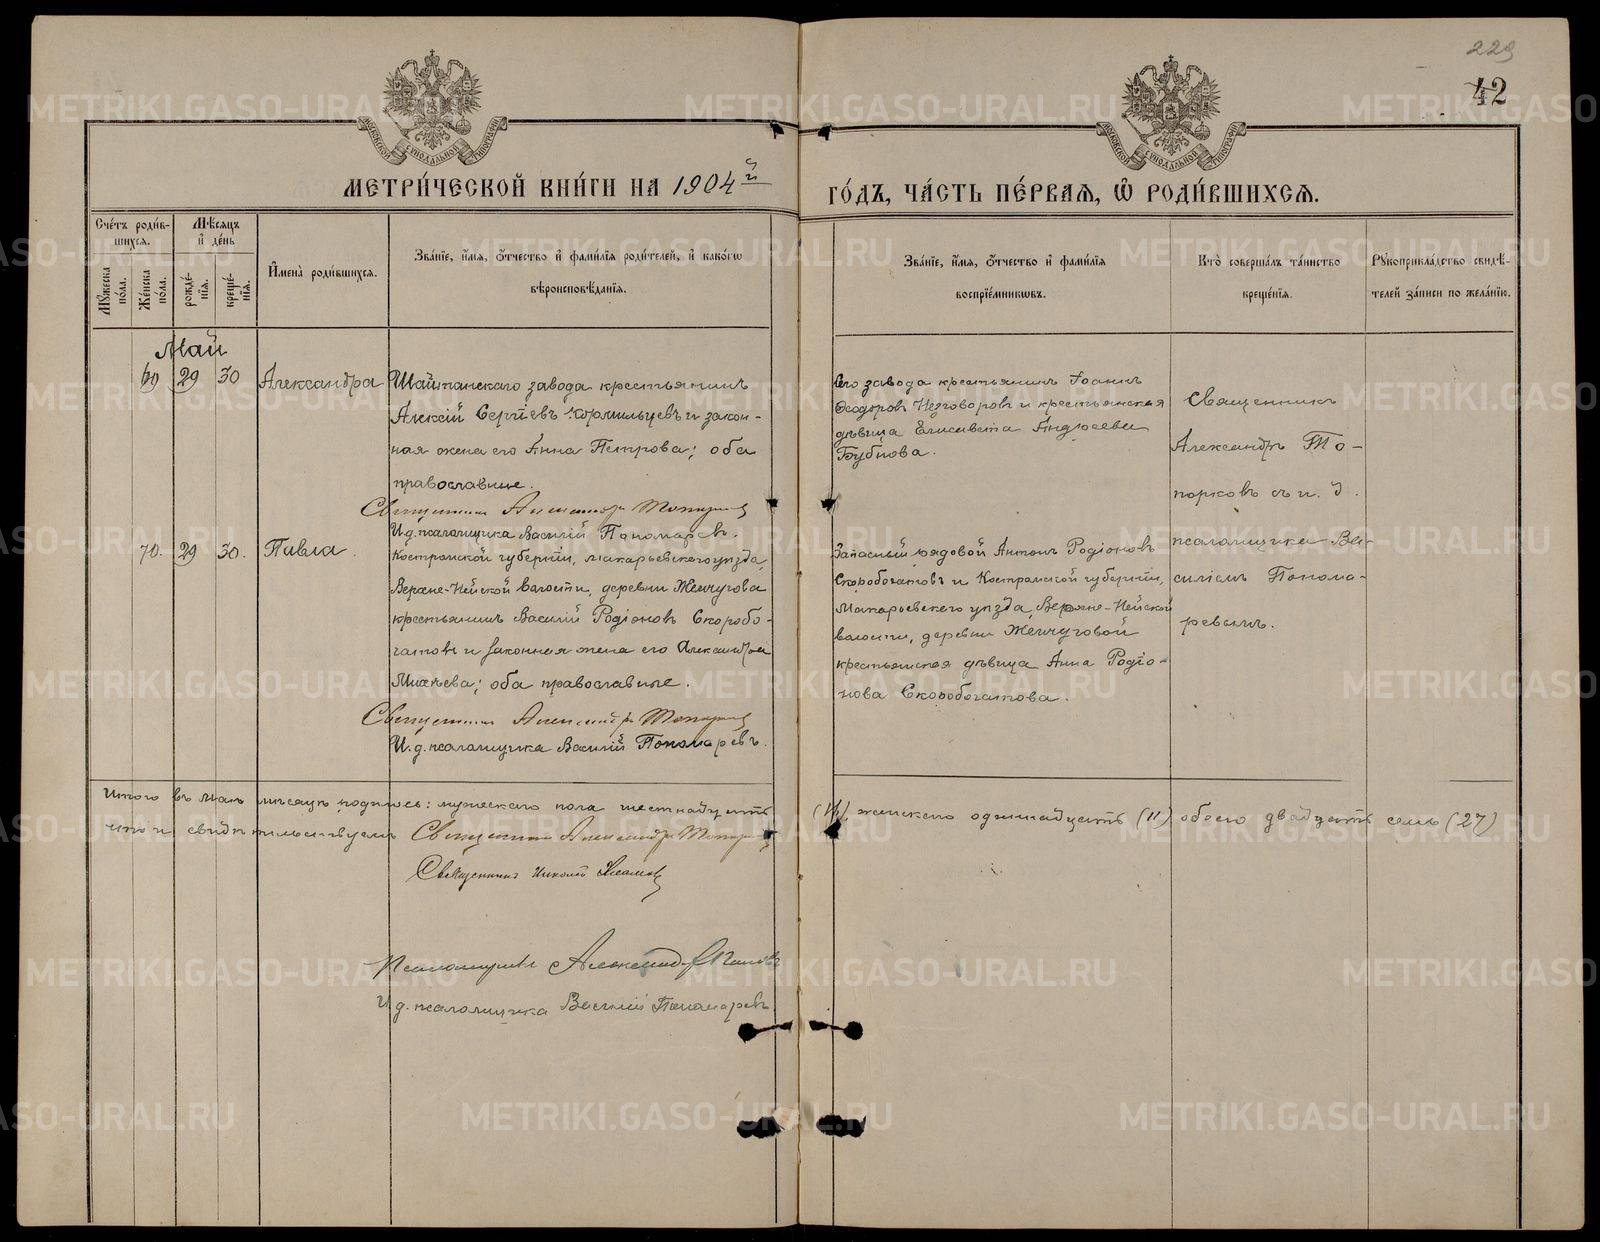 229
42
МОСКОВСКОЙ СѴНОДАЛЬНОЙ ТИПОГРАФІИ
МОСКОВСКОЙ СѴНОДАЛЬНОЙ ТИПОГРАФІИ
МЕТРИ́ЧЕСКОЙ КНИ́ГИ НА 1904й
ГО́ДЪ, ЧА́СТЬ ПЕ́РВАѦ, Ѡ҆ РОДИ́ВШИХСѦ.
Сче́тъ роди́вшихсѧ.
Мѣ́сѧцъ и҆ де́нь
Мꙋ́жеска по́ла.
Же́нска по́ла.
рожде́нїѧ.
креще́нїѧ.
И҆мена̀ роди́вшихсѧ.
Зва́нїе, и҆́мѧ, ѻ҆́тчество и҆ фами́лїѧ роди́телей, и҆ како́гѡ
вѣроисповѣ́данїѧ.
Зва́нїе, и҆́мѧ, ѻ҆́тчество и҆ фами́лїѧ
воспрїе́мникѡвъ.
Кто̀ соверша́лъ та́инство
креще́нїѧ.
Рꙋкоприкла́дство свидѣ́-
телей за́писи по жела́нїю.
Май
69 29 30 Александра
Шайтанскаго завода крестьянинъ
Алексій Сергіевъ Кормильцевъ и закон-
ная жена его Анна Петрова; оба
православные.
Священникъ Александръ Топорковъ
И.д. псаломщика Василій Пономаревъ.
Его завода крестьянинъ Іоаннъ
Ѳеодоровъ Неговоровъ и крестьянская
дѣвица Елисавета Андреева
Бубнова.
Священникъ
Александръ То-
порковъ съ и. д.
псаломщика Ва-
силіемъ Понома-
ревымъ.
70. 29 30. Павла.
Костромской губерніи, Макарьевскаго уѣзда,
Верхне-Нейской волости, деревни Жемчугова
крестьянинъ Василій Родіоновъ Скоробо-
гатовъ и законная жена его Александра
Михѣева; оба православные.
Священникъ Александръ Топорковъ
И.д. псаломщика Василій Пономаревъ.
Запасный рядовой Антонъ Родіоновъ
Скоробогатовъ и Костромской губерніи,
Макарьевскаго уѣзда, Верхне-Нейской
волости, деревни Жемчуговой
крестьянская дѣвица Анна Родіо-
нова Скоробогатова.
Итого въ Маѣ мѣсяцѣ родилось: мужескаго пола шестнадцать
(16), женскаго одиннадцать (11) обоего двадцать семь (27)
что и свидѣтельствуемъ Священникъ Александръ Топорковъ
Священникъ Николай
Псаломщикъ Александръ
И.д. псаломщика Василій Пономаревъ.
METRIKI.GASO-URAL.RU